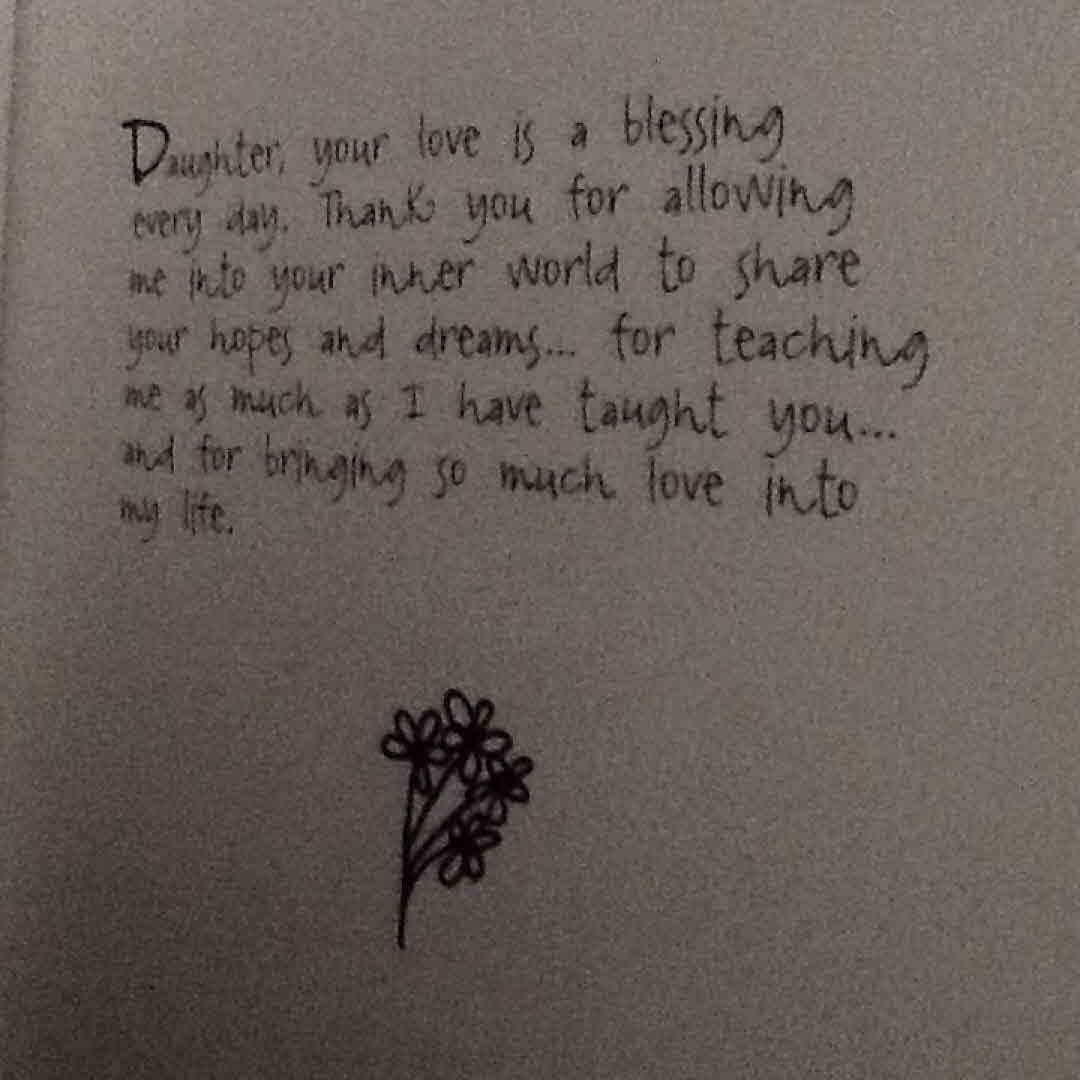 Daughter, your love is a blessing
every day. Thank you for allowing
me into your inner world to share
your hopes and dreams... for teaching
me as much as I have taught you...
and for bringing so much love into
my life.